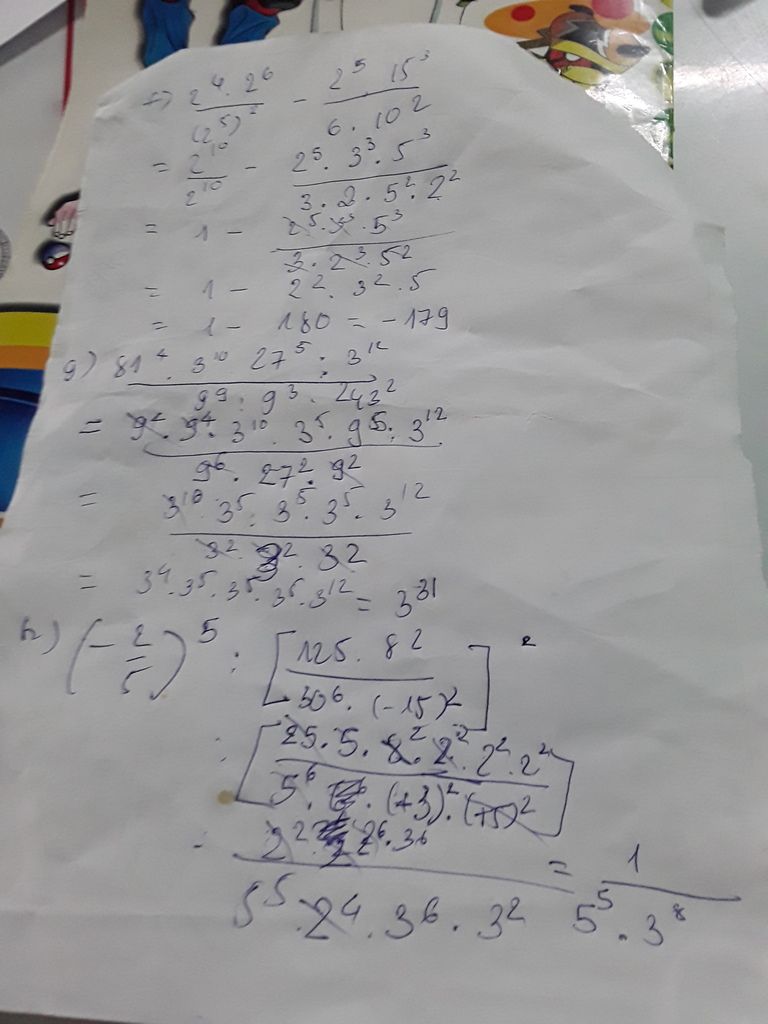 f) 2⁴ . 2⁶ / (2⁵)² - 2⁵ . 15³ / 6 . 10²
= 2¹⁰ / 2¹⁰ - 2⁵ . 3³ . 5³ / 3 . 2 . 5² . 2²
= 1 - 2⁵ . 3³ . 5³ / 3 . 2³ . 5²
= 1 - 2² . 3² . 5
= 1 - 180 = -179
g) 81⁴ . 3¹⁰ . 27⁵ : 3¹² / 9⁹ : 9³ . 243²
= 9⁴ . 9⁴ . 3¹⁰ . 3⁵ . 9⁵ : 3¹² / 9⁶ . 27² . 9²
= 3¹⁰ . 3⁵ . 3⁵ . 3⁵ . 3¹² / 3² . 3² . 32
= 3⁴ . 3⁵ . 3⁵ . 3⁵ . 3¹² = 3³¹
h) (- 2/5)⁵ : [125 . 8² / 30⁶ . (-15)²]
: [25 . 5 . 8² . 2² . 2² . 2² / 5⁶ . (+3)² . (+5)²]
2² . 2⁶ . 3⁶ / 5⁵ . 2⁴ . 3⁶ . 3² = 1 / 5⁵ . 3⁸